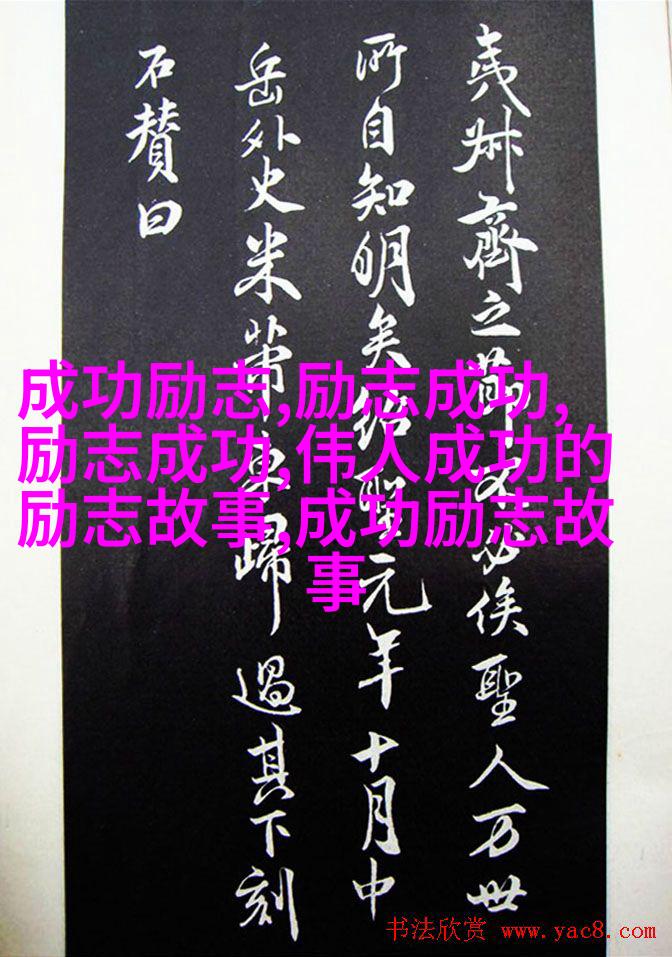 夷叔齊之節不必俟聖人万世
所自知明矣紹聖元年十月中
岳外史米芾東歸過其下刻
石贊曰
成功励志,励志成功,
励志成功,伟人成功的
励志故事,成功励志故
事
书法欣赏 www.yac8.com